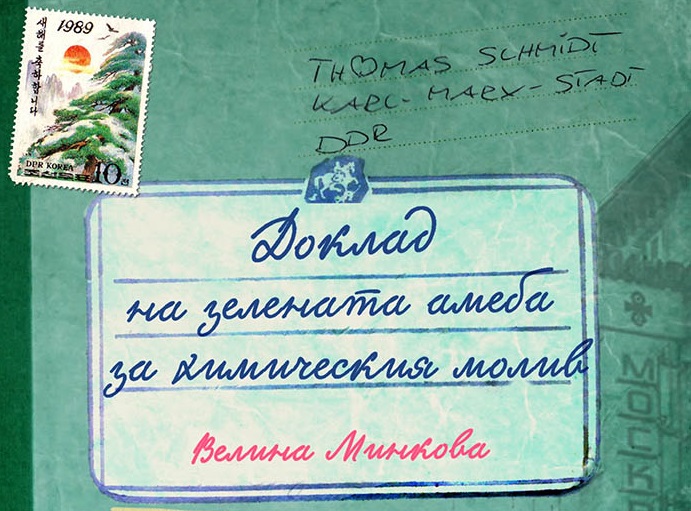 1989
새해를 축하합니다
DPR KOREA
10
THOMAS SCHMIDT
KARL-MARX-STADT
DDR
Доклад
на зелената амеба
за химическия молив
Велина Минкова